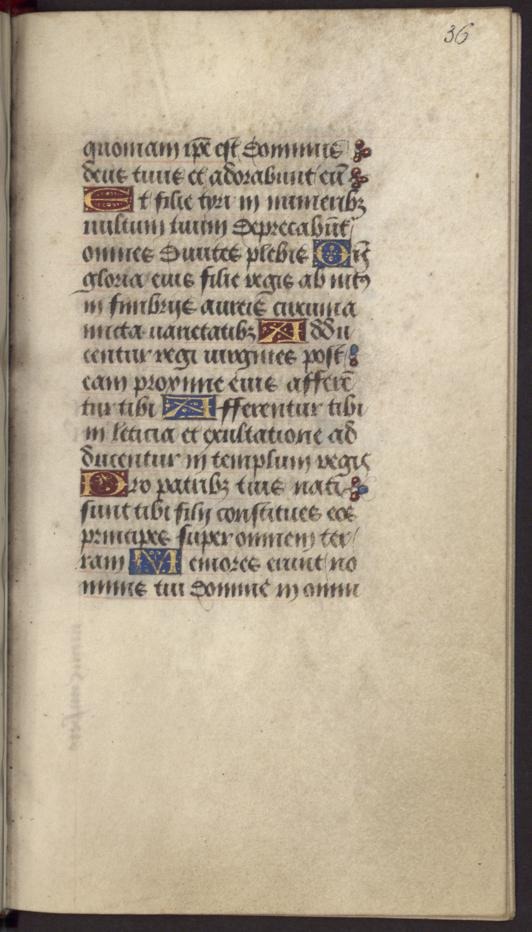 36
quoniam ip̃e est dominus
deus tuus et adorabunt eũ
Et filie tyri in muneribꝫ
vultum tuum deprecabũt̃
omnes diuites plebis Om̃is
gloria eius filie regis ab intꝰ
in fimbrijs aureis circuma
micta uarietatibꝫ Addu
centur regi uirgines post
eam proxime eius afferẽ
tur tibi Afferentur tibi
in leticia et exultatione ad
ducentur in templum regis
Pro patribꝫ tuis nati
sunt tibi filij constitues eos
principes super omnem ter
ram Memores erunt no
minis tui domine in omni